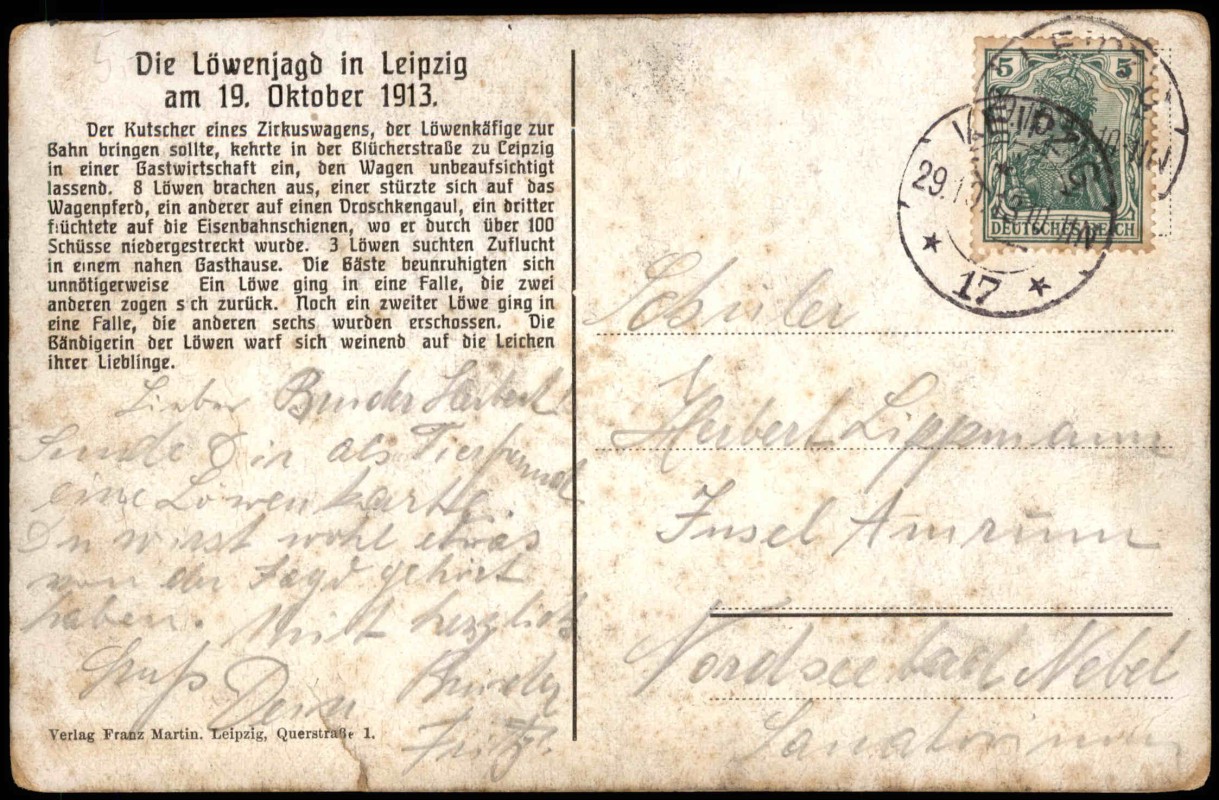 Die Löwenjagd in Leipzig
am 19. Oktober 1913.
Der Kutscher eines Zirkuswagens, der Löwenkäfige zur
Bahn bringen sollte, kehrte in der Blücherstraße zu Leipzig
in einer Gastwirtschaft ein, den Wagen unbeaufsichtigt
lassend. 8 Löwen brachen aus, einer stürzte sich auf das
Wagenpferd, ein anderer auf einen Droschkengaul, ein dritter
flüchtete auf die Eisenbahnschienen, wo er durch über 100
Schüsse niedergestreckt wurde. 3 Löwen suchten Zuflucht
in einem nahen Gasthause. Die Gäste beunruhigten sich
unnötigerweise Ein Löwe ging in eine Falle, die zwei
anderen zogen sich zurück. Noch ein zweiter Löwe ging in
eine Falle, die anderen sechs wurden erschossen. Die
Bändigerin der Löwen warf sich weinend auf die Leichen
ihrer Lieblinge.
Lieber Bruder Herbert!
Sende Dir als Tierfreund
eine Löwenkarte.
Du wirst wohl etwas
von der Jagd gehört
haben. Mit herzlich
Gruß Dein Bruder
Fritz.
Verlag Franz Martin. Leipzig, Querstraße 1.
5 5
DEUTSCHES REICH
LEIPZIG
LEIPZIG
29.10.13
* 17 *
Schüler
Herbert Lippmann
Insel Amrum
Nordseebad Nebel
Sanatorium